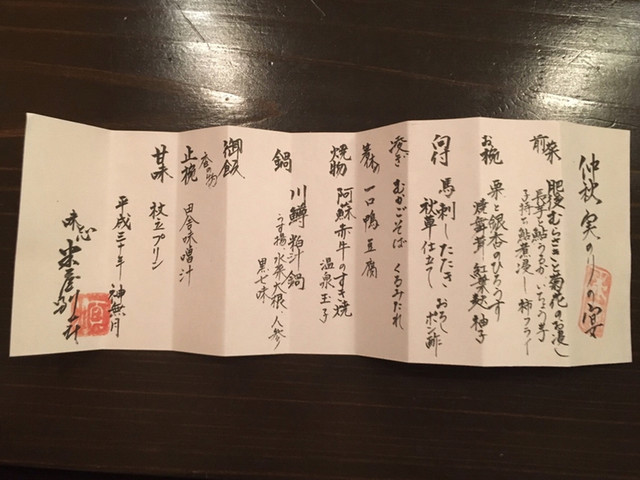 仲秋 実のりの宴
前菜 肥後むらさきと菊花のお浸し
長芋と鮎うるか いちょう芋
子持ち鮎煮浸し 柿フライ
お椀 栗と銀杏のひろうす
焼舞茸 紅葉麩 柚子
向付 馬刺したたき おろしポン酢
秋草仕立て
凌ぎ むかごそば くるみだれ
一口鴨豆腐
焼物 阿蘇赤牛のすき焼
温泉玉子
鍋 川鱒粕汁鍋
うす揚 水菜 大根 人参
黒七味
御飯
香の物
止椀 田舎味噌汁
甘味 杖立プリン
平成三十年 神無月
味心 米屋別荘